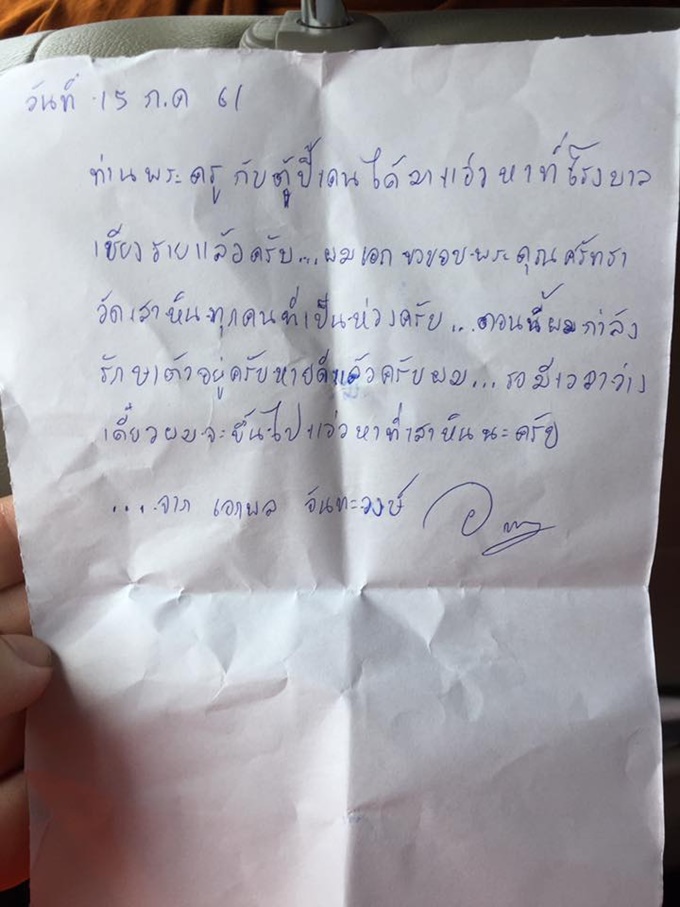 วันที่ 15 ก.ค 61
ท่านพระครู กับตุ๊ปี้เดนได้มาแอ่วหาที่โรงบาล
เชียงรายแล้วครับ...ผมเอก ขอขอบพระคุณศรัทธา
วัดเสาหินทุกคนที่เป็นห่วงครับ...ตอนนี้ผมกำลัง
รักษาตัวอยู่ครับหายดีแล้วครับผม...รอมีเวลาว่าง
เดี๋ยวผมจะขึ้นไปแอ่วหาที่เสาหินนะครับ
....จาก เอกพล จันทะวงษ์